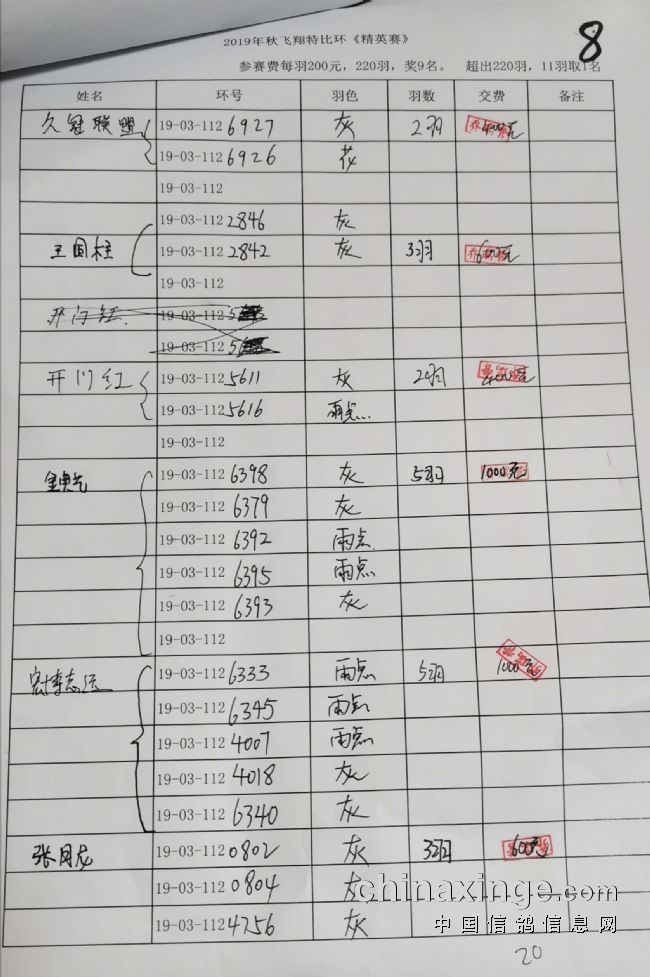 8
2019年秋飞翔特比环《精英赛》
参赛费每羽200元，220羽，奖9名。 超出220羽，11羽取1名
姓名 环号 羽色 羽数 交费 备注
久冠联盟 19-03-112 6927 灰 2羽 400元
19-03-112 6926 花
19-03-112
19-03-112 2846 灰
王国柱 19-03-112 2842 灰 3羽 600元
19-03-112
开门红 19-03-112
19-03-112
开门红 19-03-112 5611 灰 2羽 400元
19-03-112 5616 雨点
19-03-112
19-03-112 6398 灰 5羽 1000元
19-03-112 6379 灰
19-03-112 6392 雨点
19-03-112 6395 雨点
19-03-112 6393 灰
19-03-112
19-03-112 6333 雨点 5羽 1000元
19-03-112 6345 雨点
19-03-112 4007 雨点
19-03-112 4018 灰
19-03-112 6340 灰
19-03-112 0802 灰 3羽 600元
19-03-112 0804 灰
19-03-112 4756 灰
chinaxinge.com
中国信鸽信息网
20